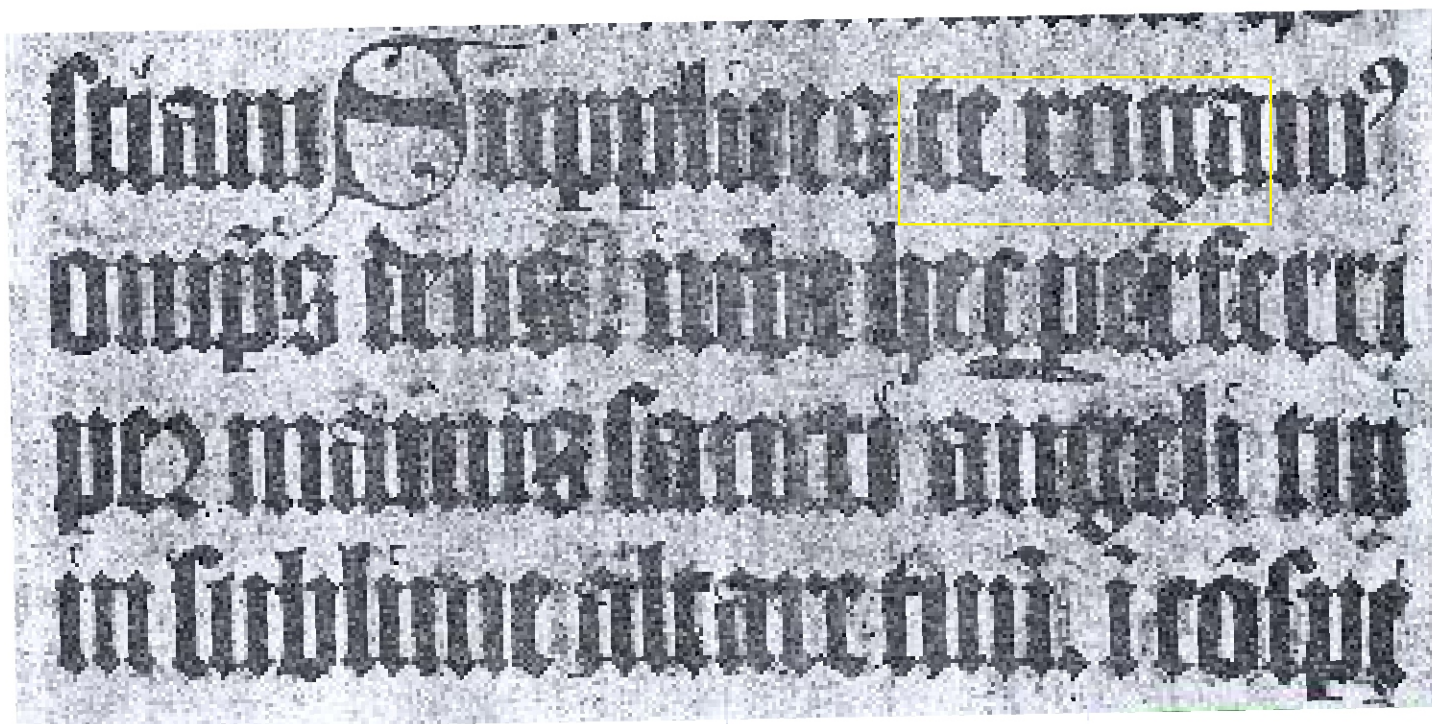 stiam Supplices te rogamꝰ
omp̄s deus iube hec perferri
per manus sancti angeli tui
in sublime altare tuū. ī cōspe